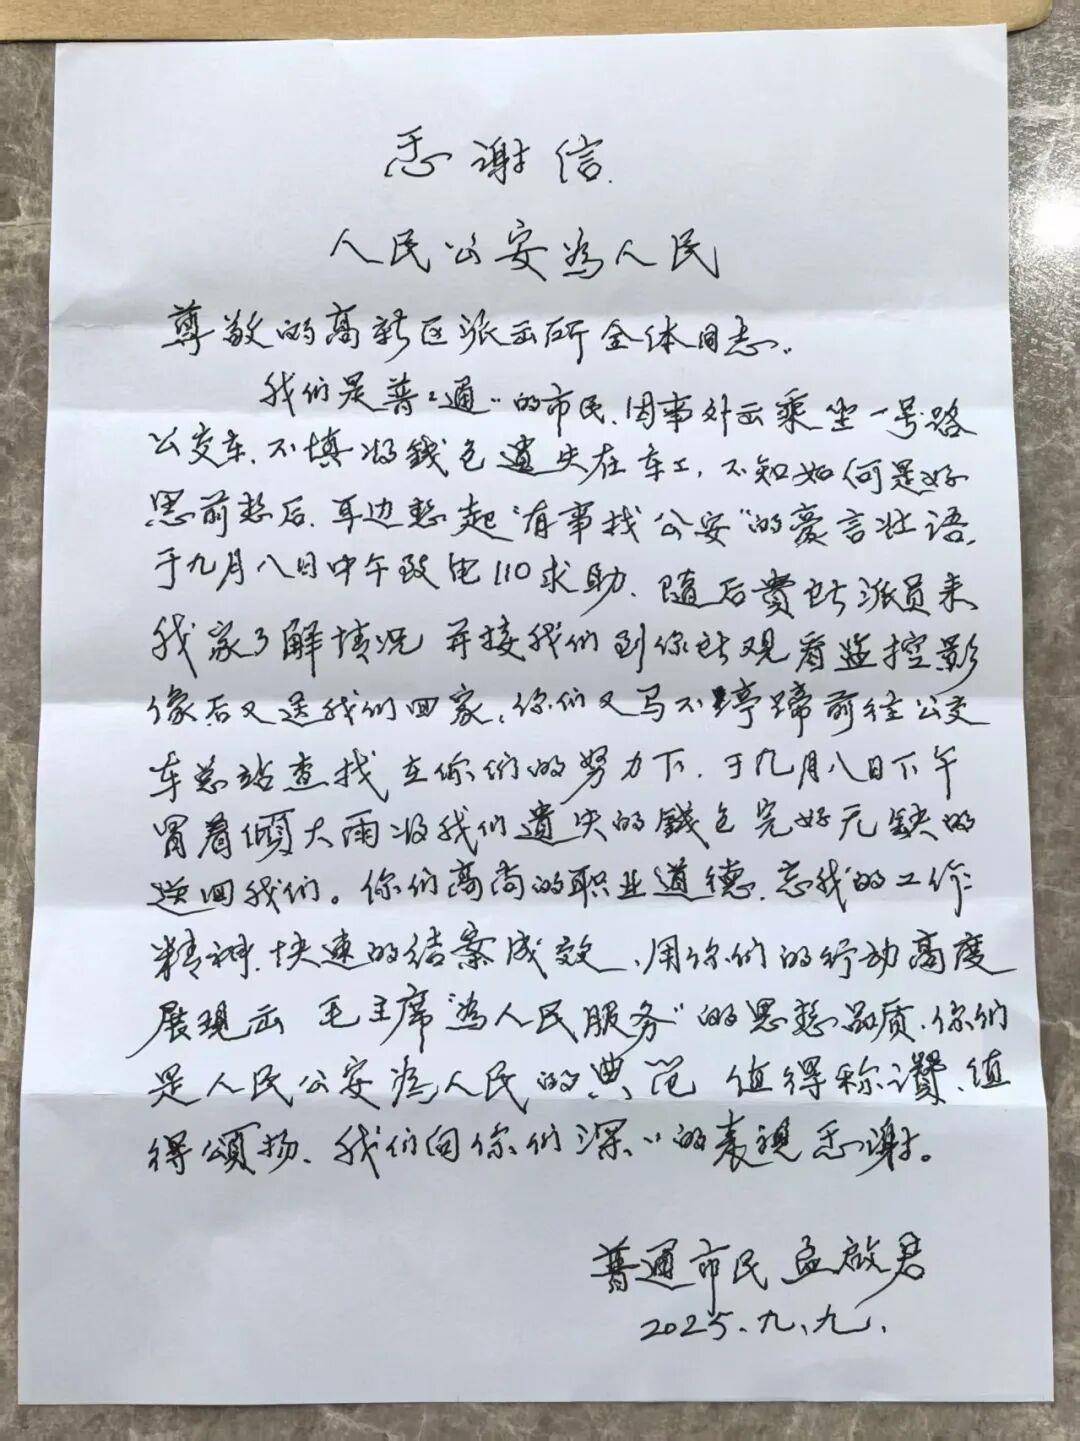 感谢信.
人民公安為人民
尊敬的高新区派出所全体同志.
我们是普々通々的市民,因事外出乘坐一号路
公交车,不慎将錢包遺失在车上,不知如何是好
思前想后,耳边想起"有事找公安"的豪言壮语,
于九月八日中午致电110求助,随后贵站派员来
我家了解情况 并接我们到你站观看监控影
像后又送我们回家,你们又马不停蹄前往公交
车总站查找 在你们的努力下,于九月八日下午
冒着倾大雨将我们遺失的錢包完好无缺的
送回我们。你们高尚的职业道德,忘我的工作
精神,快速的结案成效、用你们的行动高度
展现出 毛主席"為人民服务"的思想品质,你们
是人民公安為人民的典范 值得称讚、值
得頌扬、我们向你们深々的表现感谢。
普通市民 孟啟君
2025.九、九、